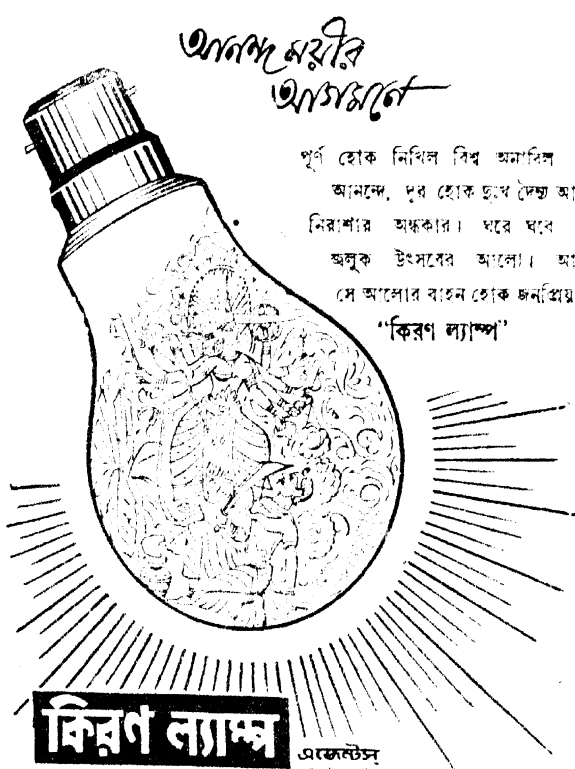 আনন্দময়ীর
আগমনে
পূর্ণ হোক নিখিল বিশ্ব অনাবিল
আনন্দে, দূর হোক দুঃখ দৈন্য আ
নিরাশার অন্ধকার। ঘরে ঘরে
জ্বলুক উৎসবের আলো। আ
সে আলোর বাহন হোক জনপ্রিয়
"কিরণ ল্যাম্প"
কিরণ ল্যাম্প
এজেন্টস্